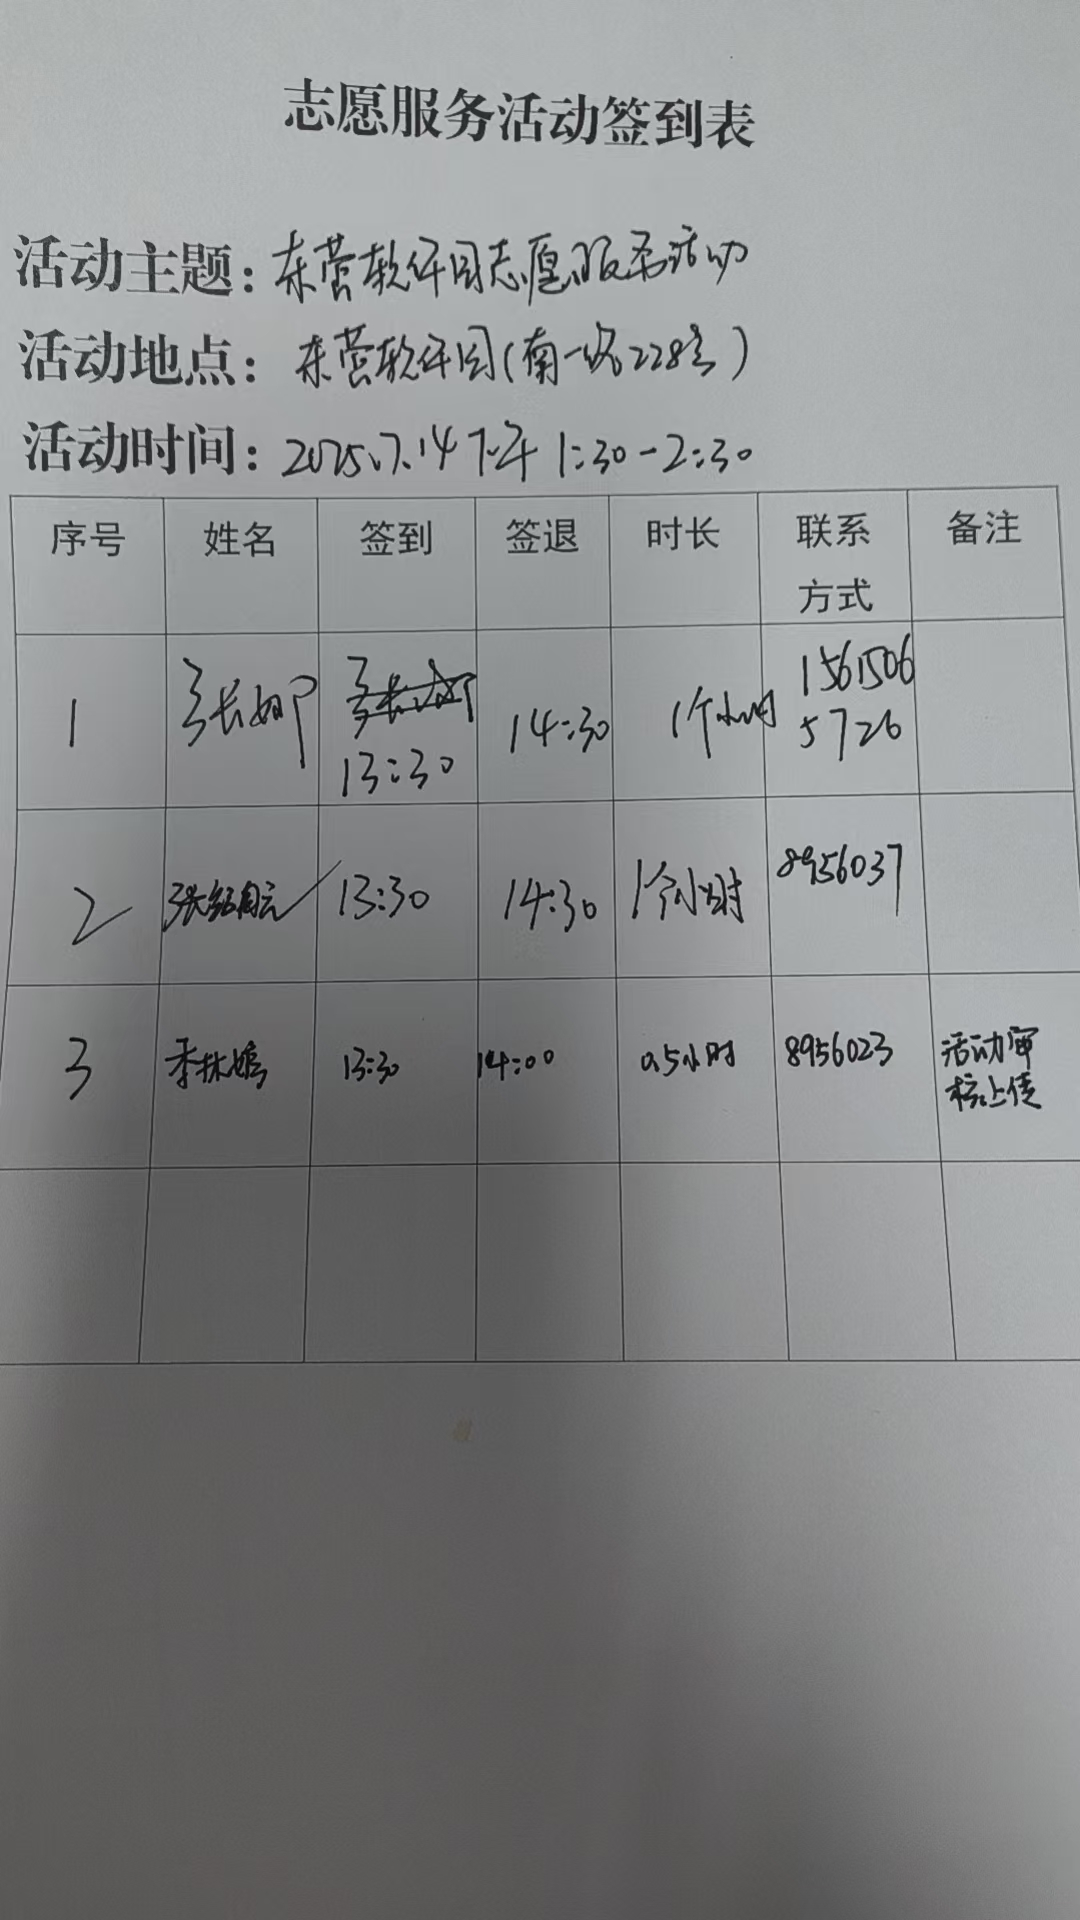 志愿服务活动签到表
活动主题: 东营软件园志愿服务活动
活动地点: 东营软件园(南一路228号)
活动时间: 2025.7.14 下午 1:30-2:30
序号 姓名 签到 签退 时长 联系方式 备注
1 13:30 14:30 1个小时 15615065726
2 13:30 14:30 1个小时 8956037
3 李林嫣 13:30 14:00 0.5小时 8956023 活动审核上传